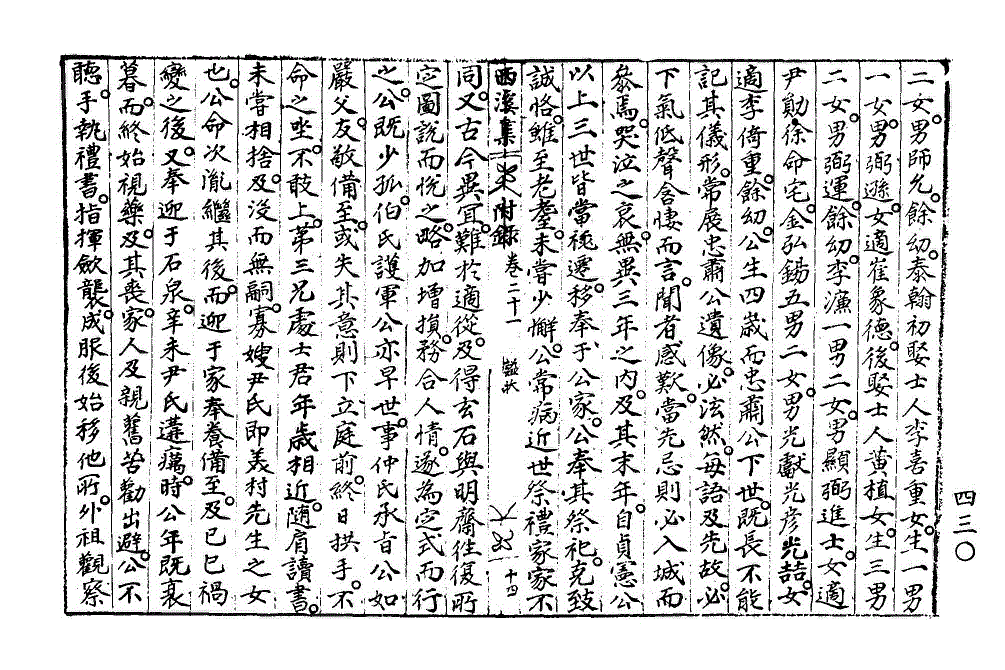 二女。男師允。餘幼。泰翰初娶士人李喜重女。生一男
一女。男弼遜。女適崔象德。後娶士人黃植女。生三男
二女。男弼運。餘幼。李濂一男二女。男顯弼進士。女適
尹勛。徐命宅。金弘錫五男二女。男光獻光彦光喆。女
適李倚重。餘幼。公生四歲而忠肅公下世。既長不能
記其儀形。常展忠肅公遺像。必泫然。每語及先故。必
下氣低聲含悽而言。聞者感歎。當先忌則必入城而
參焉。哭泣之哀。無異三年之內。及其末年。自貞憲公
以上三世皆當祧遷。移奉于公家。公奉其祭祀。克致
誠恪。雖至老耋。未嘗少懈。公常病近世祭禮家家不
西溪集 附錄 卷二十一 諡狀 十四
同。又古今異宜。難於適從。及得玄石與明齋往復所
定圖說而悅之。略加增損。務合人情。遂為定式而行
之。公既少孤。伯氏護軍公亦早世。事仲氏承旨公如
嚴父。友敬備至。或失其意則下立庭前。終日拱手。不
命之坐。不敢上。第三兄處士君年歲相近。隨肩讀書。
未嘗相捨。及沒而無嗣。寡嫂尹氏即美村先生之女
也。公命次胤繼其後。而迎于家。奉養備至。及己巳禍
變之後。又奉迎于石泉。辛未尹氏遘癘。時公年既衰
暮。而終始視藥。及其喪。家人及親舊苦勸出避。公不
聽。手執禮書。指揮斂襲。成服後始移他所。外祖觀察
四三〇